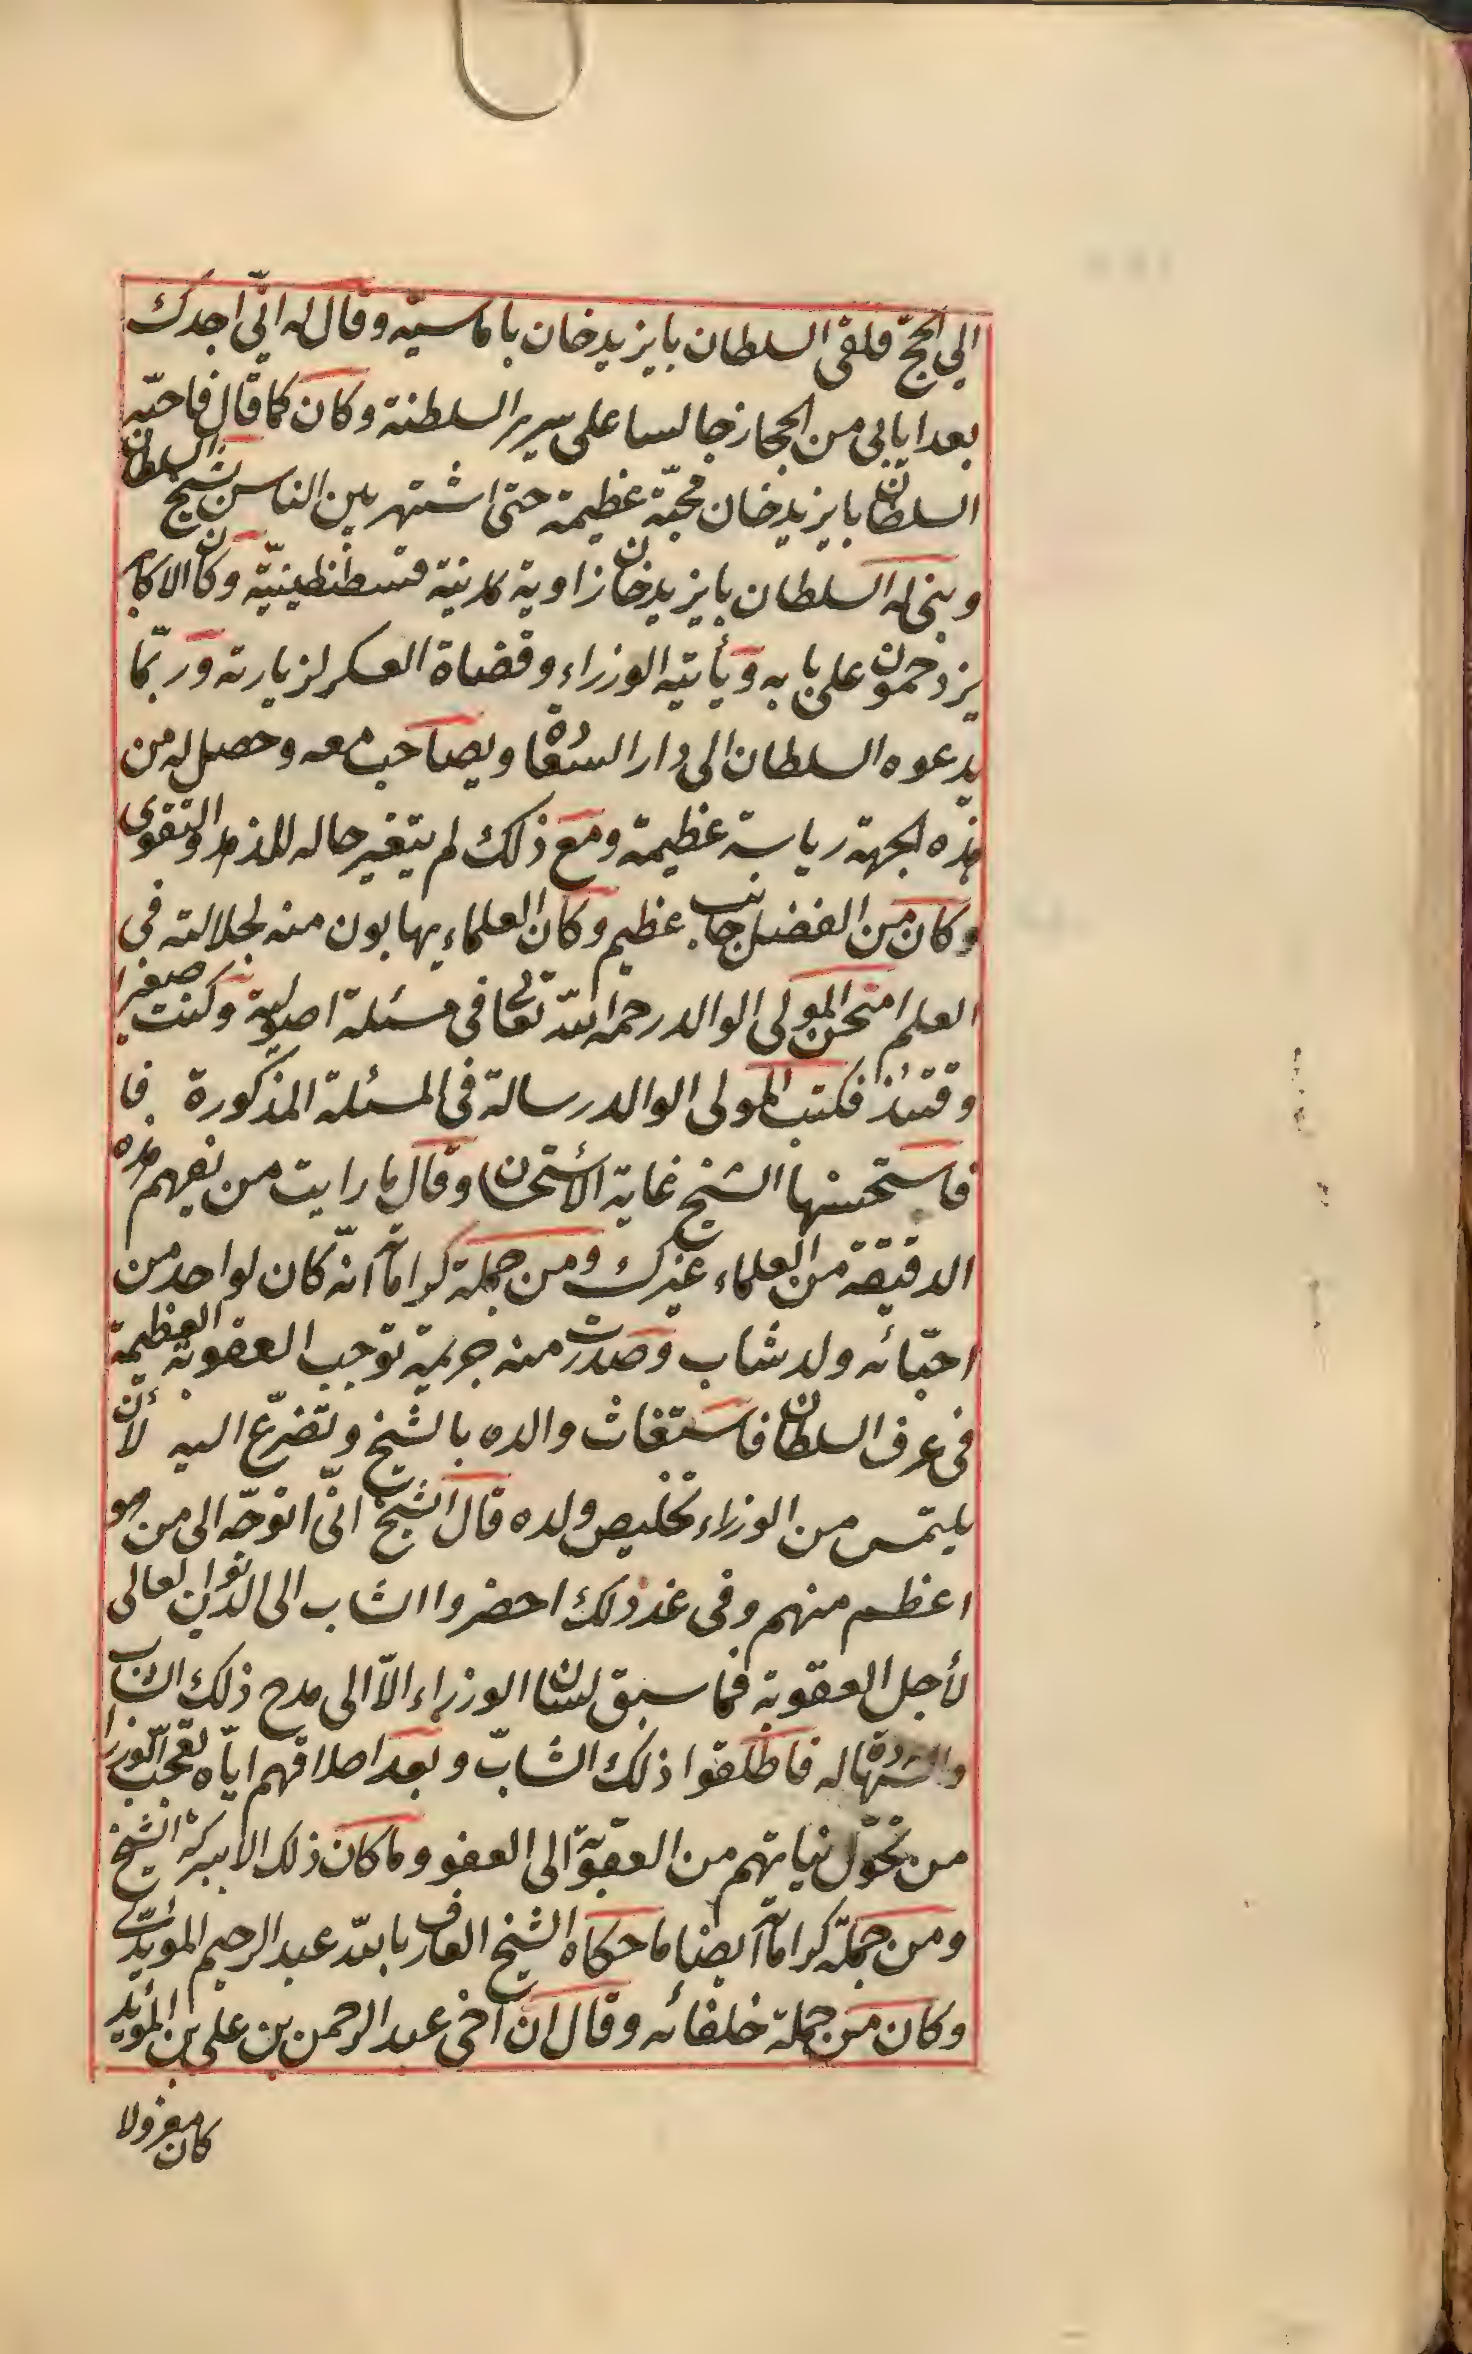 الى الحجّ فلقى السلطان بايزيد خان باماسيّه وقال له انّى اجدك
بعد ايابى من الحجاز جالسا على سرير السلطنة وكان كما قال فاحبّه
السلطان بايزيد خان محبّة عظيمة حتى اشتهر بين الناس بشيخ السلطان
وبنى له السلطان بايزيد خان زاوية بمدينة قسطنطينيّة وكان الاكابر
يزدحمون على بابه ويأتيه الوزراء وقضاة العسكر لزيارته وربّما
يدعوه السلطان الى دار السعادة ويصاحب معه وحصل له من
هذه الجهة رياسة عظيمة ومع ذلك لم يتغير حاله والتقوى
وكان من الفضل جانب عظيم وكان العلماء يهابون منه لجلالته فى
العلم امتحن المولى الوالد رحمه الله تعالى فى مسئلة اصولية وكنت صغيرا
وقتئذ فكتب المولى الوالد رسالة فى المسئلة المذكورة فا
فاستحسنها الشيخ غاية الأستحسان وقال ما رايت من يفهم هذه
الدقيقة من العلماء غيرك ومن جملة كراماته انّه كان لواحد من
احبّائه ولد شاب وصدرت منه جريمة توجب العقوبة العظيمة
فى عرف السلطان فاستغاث والده بالشيخ وتضرّع اليه لأن
يلتمس من الوزراء تخليص ولده قال الشيخ انّى اتوجّه الى من هو
اعظم منهم وفى غد ذلك احضروا الشاب الى الديوان العالى
لأجل العقوبة فما سبق لسان الوزراء الاّ الى مدح ذلك الشاب
والشهادة له فاطلقوا ذلك الشابّ وبعد اطلاقهم ايّاه تعجّب الوزرا
من تحوّل نياتهم من العقوبة الى العفو وما كان ذلك الا ببركة الشيخ
ومن جملة كراماته ايضا ما حكاه الشيخ العارف بالله عبد الرحيم المؤيّدى
وكان من جملة خلفائه وقال انّ اخى عبد الرحمن بن على بن المؤيد
كان معزولا